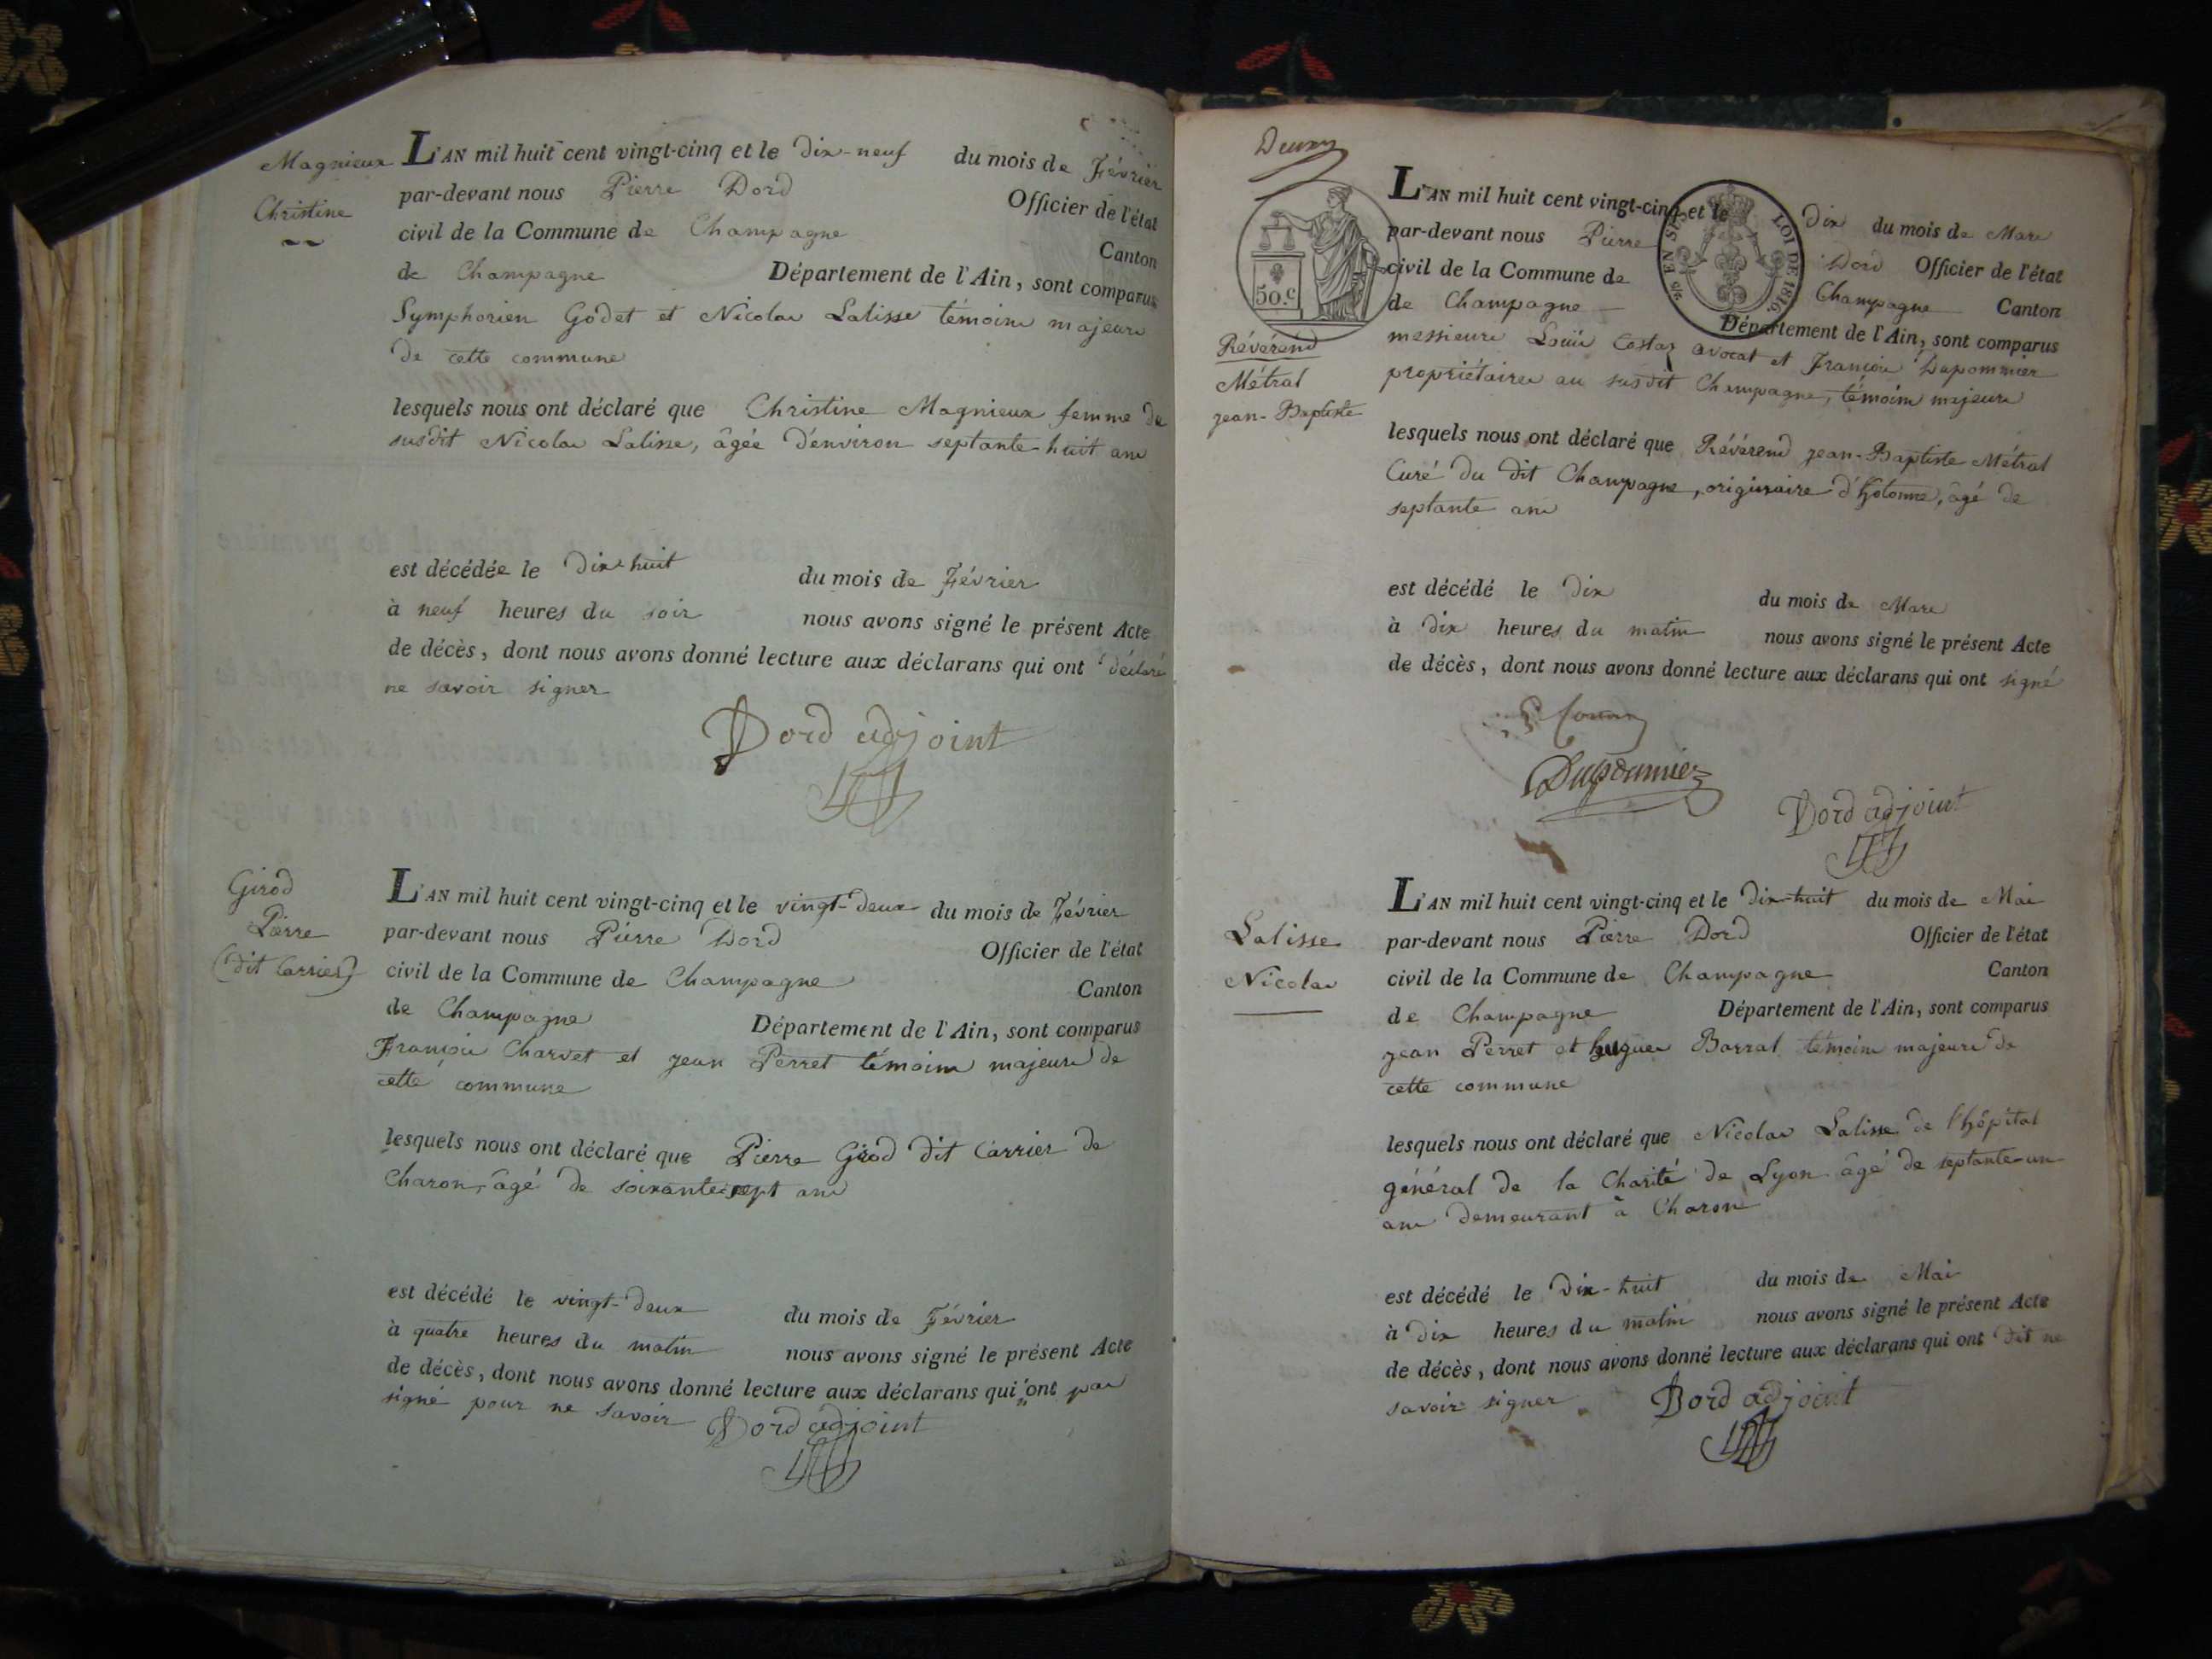 Magnieux
Christine
L'AN mil huit cent vingt-cinq et le dix-neuf du mois de Février
par-devant nous Pierre Dord Officier de l'état
civil de la Commune de Champagne Canton
de Champagne Département de l'Ain, sont comparus
Symphorien Godet et Nicolas Lalisse témoins majeurs
de cette commune
lesquels nous ont déclaré que Christine Magnieux femme de
susdit Nicolas Lalisse, âgée d'environ septante-huit ans
est décédée le dix-huit du mois de Février
à neuf heures du soir nous avons signé le présent Acte
de décès, dont nous avons donné lecture aux déclarans qui ont déclaré
ne savoir signer
Dord adjoint
Girod
Pierre
(dit Carrier)
L'AN mil huit cent vingt-cinq et le vingt-deux du mois de Février
par-devant nous Pierre Dord Officier de l'état
civil de la Commune de Champagne Canton
de Champagne Département de l'Ain, sont comparus
François Charvet et jean Perret témoins majeurs de
cette commune
lesquels nous ont déclaré que Pierre Girod dit Carrier de
Charon, âgé de soixante-sept ans
est décédé le vingt-deux du mois de Février
à quatre heures du matin nous avons signé le présent Acte
de décès, dont nous avons donné lecture aux déclarans qui n'ont pas
signé pour ne savoir
Dord adjoint
50.c
EN SUS
LOI DE 1816
Révérend
Métral
jean-Baptiste
L'AN mil huit cent vingt-cinq et le dix du mois de Mars
par-devant nous Pierre Dord Officier de l'état
civil de la Commune de Champagne Canton
de Champagne Département de l'Ain, sont comparus
messieurs Louis Costaz avocat et François Dupommier
propriétaires au susdit Champagne, témoins majeurs
lesquels nous ont déclaré que Révérend jean-Baptiste Métral
Curé du dit Champagne, originaire d'hotonne, âgé de
septante ans
est décédé le dix du mois de Mars
à dix heures du matin nous avons signé le présent Acte
de décès, dont nous avons donné lecture aux déclarans qui ont signé
Dupommier
Dord adjoint
Lalisse
Nicolas
L'AN mil huit cent vingt-cinq et le dix-huit du mois de Mai
par-devant nous Pierre Dord Officier de l'état
civil de la Commune de Champagne Canton
de Champagne Département de l'Ain, sont comparus
jean Perret et hugues Barral témoins majeurs de
cette commune
lesquels nous ont déclaré que Nicolas Lalisse de l'hôpital
général de la Charité de Lyon âgé de septante-un
ans demeurant à Charon
est décédé le dix-huit du mois de Mai
à dix heures du matin nous avons signé le présent Acte
de décès, dont nous avons donné lecture aux déclarans qui ont dit ne
savoir signer
Dord adjoint